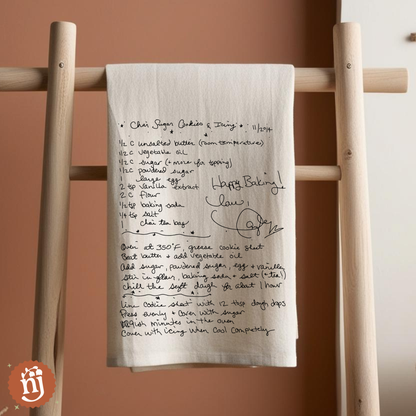 ★ Chai Sugar Cookies & Icing ★
1/2 C unsalted butter (room temperature)
1/2 C vegetable oil
1/2 C sugar (+ more for topping)
1/2 C powdered sugar
1 large egg
2 tsp vanilla extract
2 C flour
1/2 tsp baking soda
1/4 tsp salt
1 chai tea bag
Happy Baking!
Love,
Oven at 350°F, grease cookie sheet
Beat butter + add vegetable oil
Add sugar, powdered sugar, egg + vanilla
Stir in flour, baking soda + salt (+ tea!)
Chill the soft dough for about 1 hour
Line cookie sheet with 12 tbsp dough drops
Press evenly + cover with sugar
minutes in the oven
Cover with icing when cool completely
nj